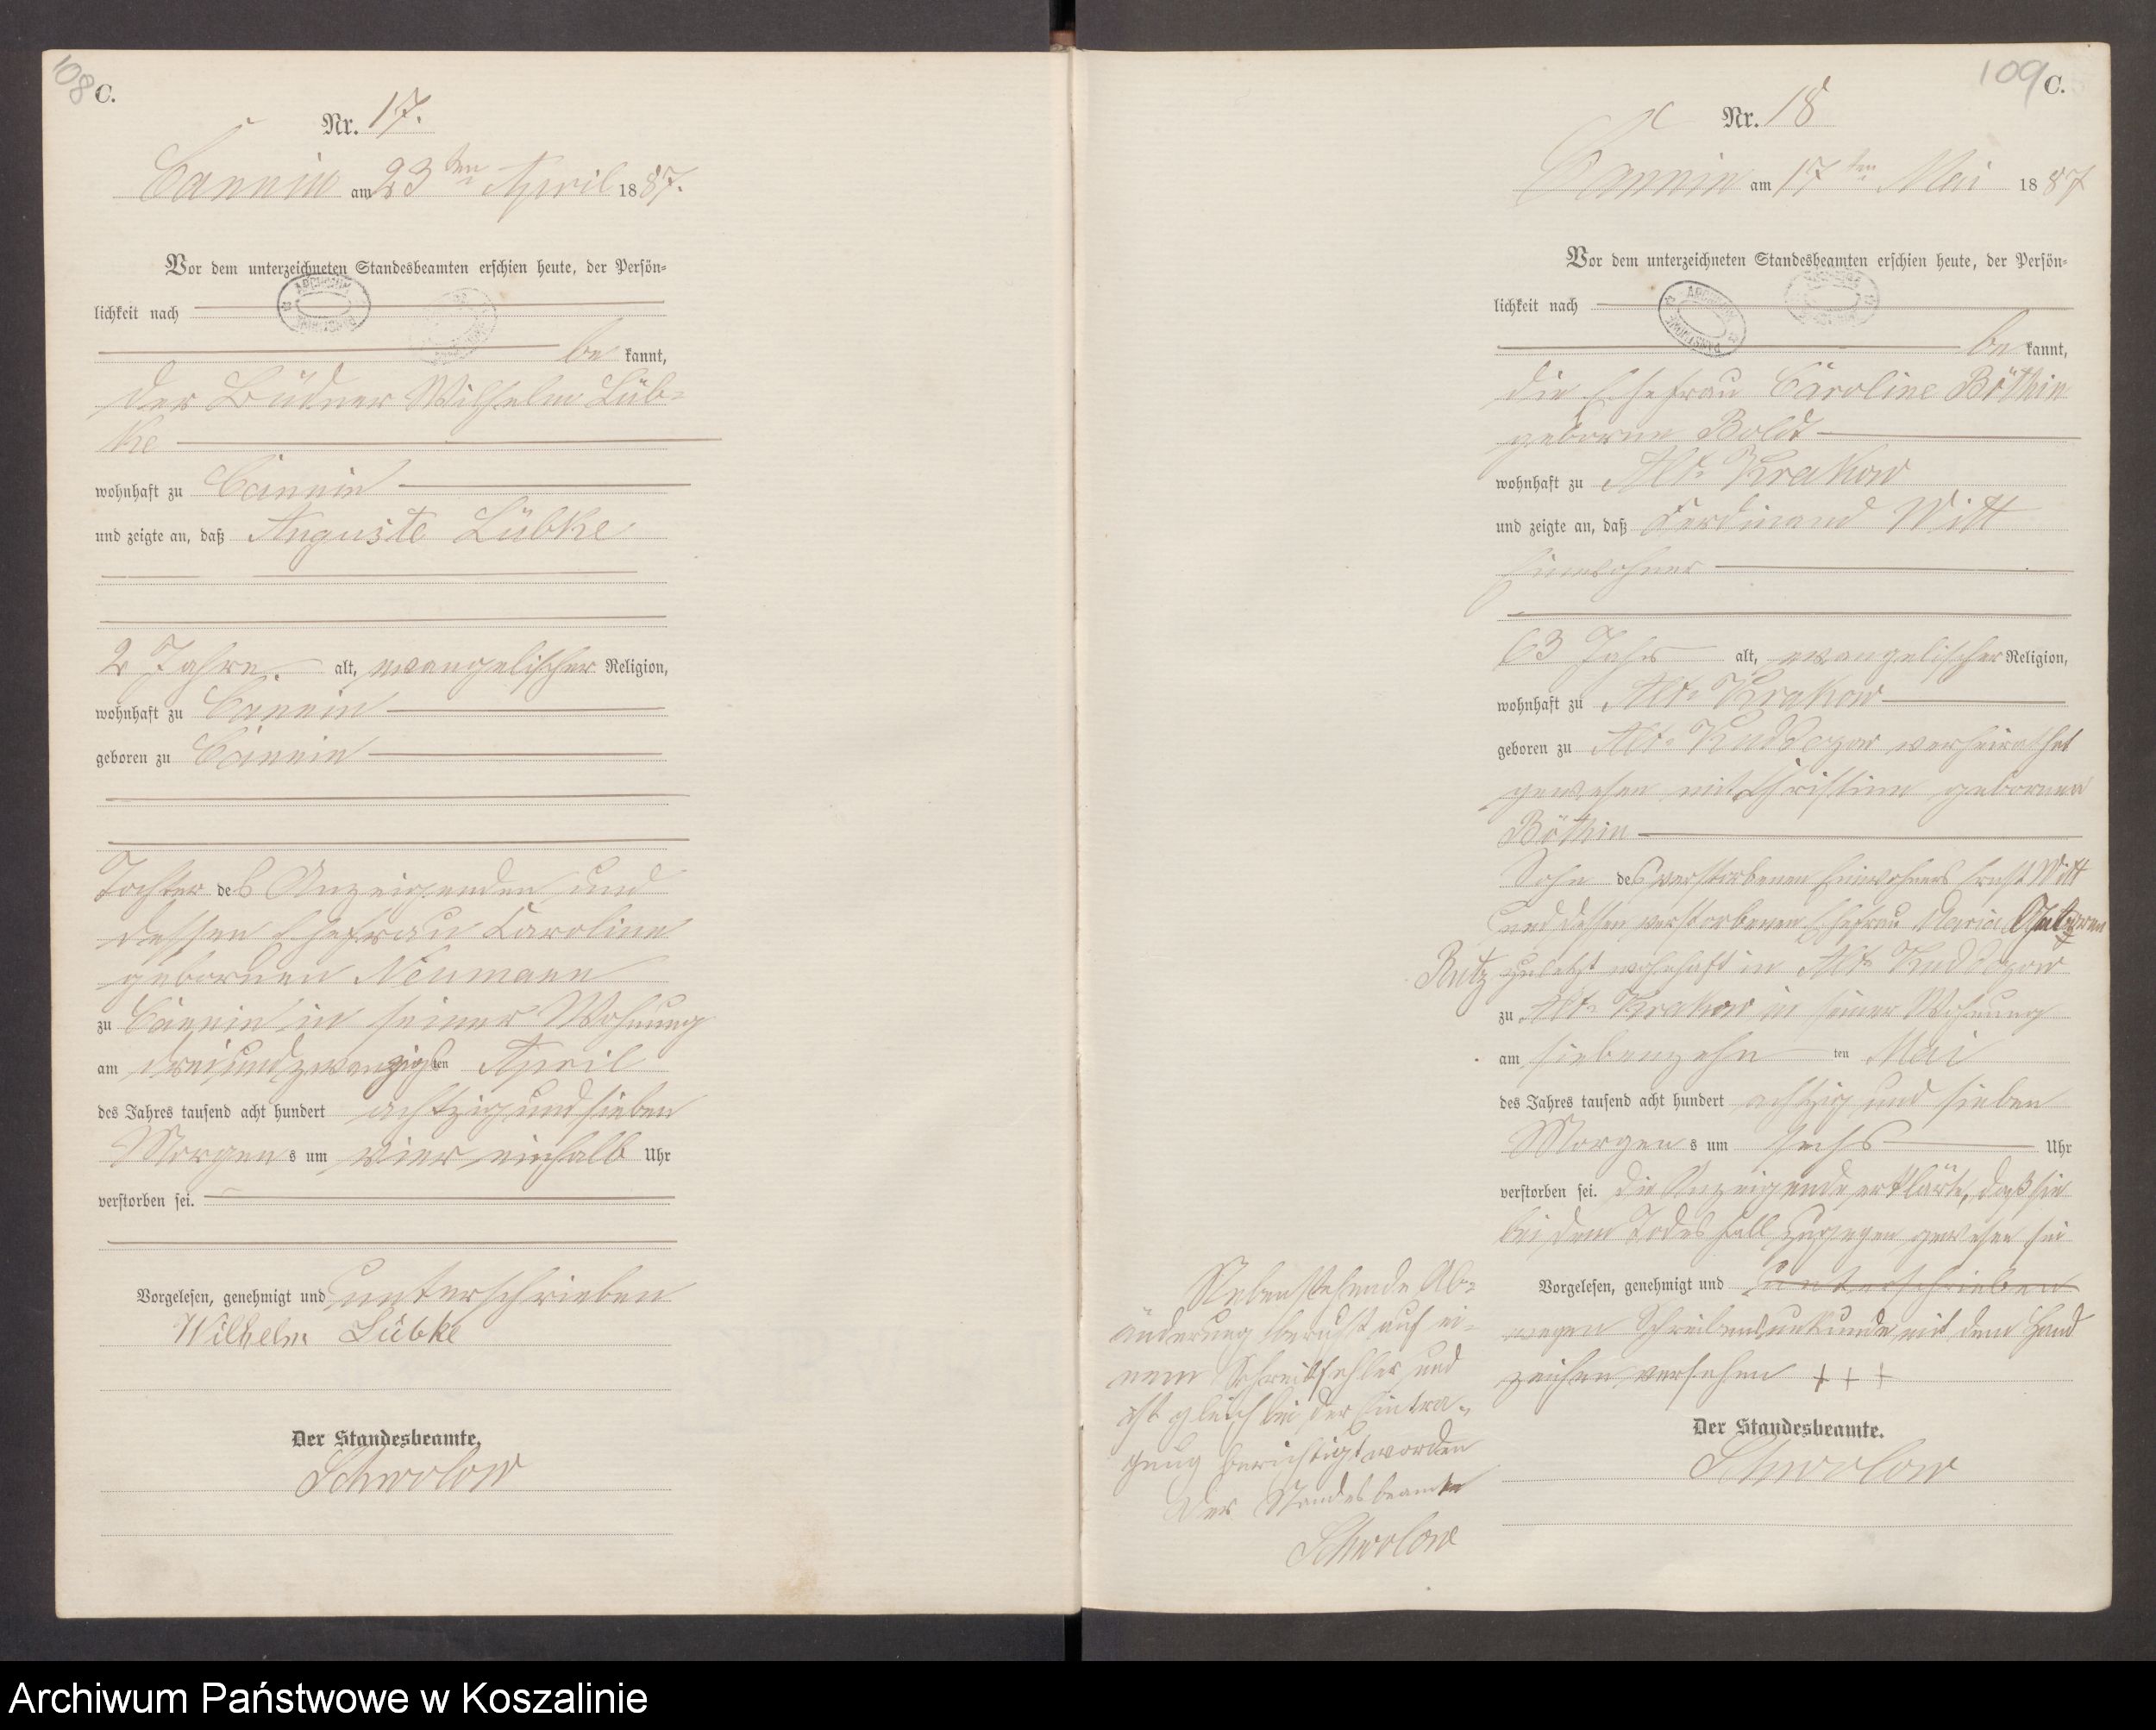 108 C.
Nr. 17.
Cannin am 23ten April 1887.
Vor dem unterzeichneten Standesbeamten erschien heute, der Persön-
lichkeit nach
be kannt,
der Büdner Wilhelm Lüb-
ke
wohnhaft zu Cannin
und zeigte an, daß Auguste Lübke
2 Jahre alt, evangelischer Religion,
wohnhaft zu Cannin
geboren zu Cannin
Tochter des Anzeigenden und
dessen Ehefrau Caroline
gebornen Neumann
zu Cannin in seiner Wohnung
am dreiundzwanzigsten April
des Jahres tausend acht hundert achtzig und sieben
Morgens um vier einhalb Uhr
verstorben sei.
Vorgelesen, genehmigt und unterschrieben
Wilhelm Lübke
Der Standesbeamte.
Schwolow
109 C.
Nr. 18
Cannin am 17ten Mai 1887
Vor dem unterzeichneten Standesbeamten erschien heute, der Persön-
lichkeit nach
be kannt,
die Ehefrau Caroline Böthin
geborne Boldt
wohnhaft zu Alt-Krakow
und zeigte an, daß Ferdinand Witt
Einwohner
63 Jahr alt, evangelischer Religion,
wohnhaft zu Alt-Krakow
geboren zu Alt-Kuddezow verheirathet
gewesen mit Christine gebornen
Böthin
Sohn des verstorbenen Einwohners Ernst Witt
und dessen verstorbenen Ehefrau Maria gebornen
Rutz zuletzt wohnhaft in Alt-Kuddezow
zu Alt-Krakow in seiner Wohnung
am siebenzehn ten Mai
des Jahres tausend acht hundert achtzig und sieben
Morgens um sechs Uhr
verstorben sei. die Anzeigende erklärte, daß sie
bei dem Todesfall zugegen gewesen sei
Vorgelesen, genehmigt und unterschrieben
wegen Schreibensunkunde mit dem Hand
zeichen versehen + + +
Der Standesbeamte.
Schwolow
Nebenstehende Ab-
änderung beruht auf ei-
nem Schreibfehler und
ist gleich bei der Eintra-
gung berichtigt worden
Der Standesbeamte
Schwolow
Archiwum Państwowe w Koszalinie